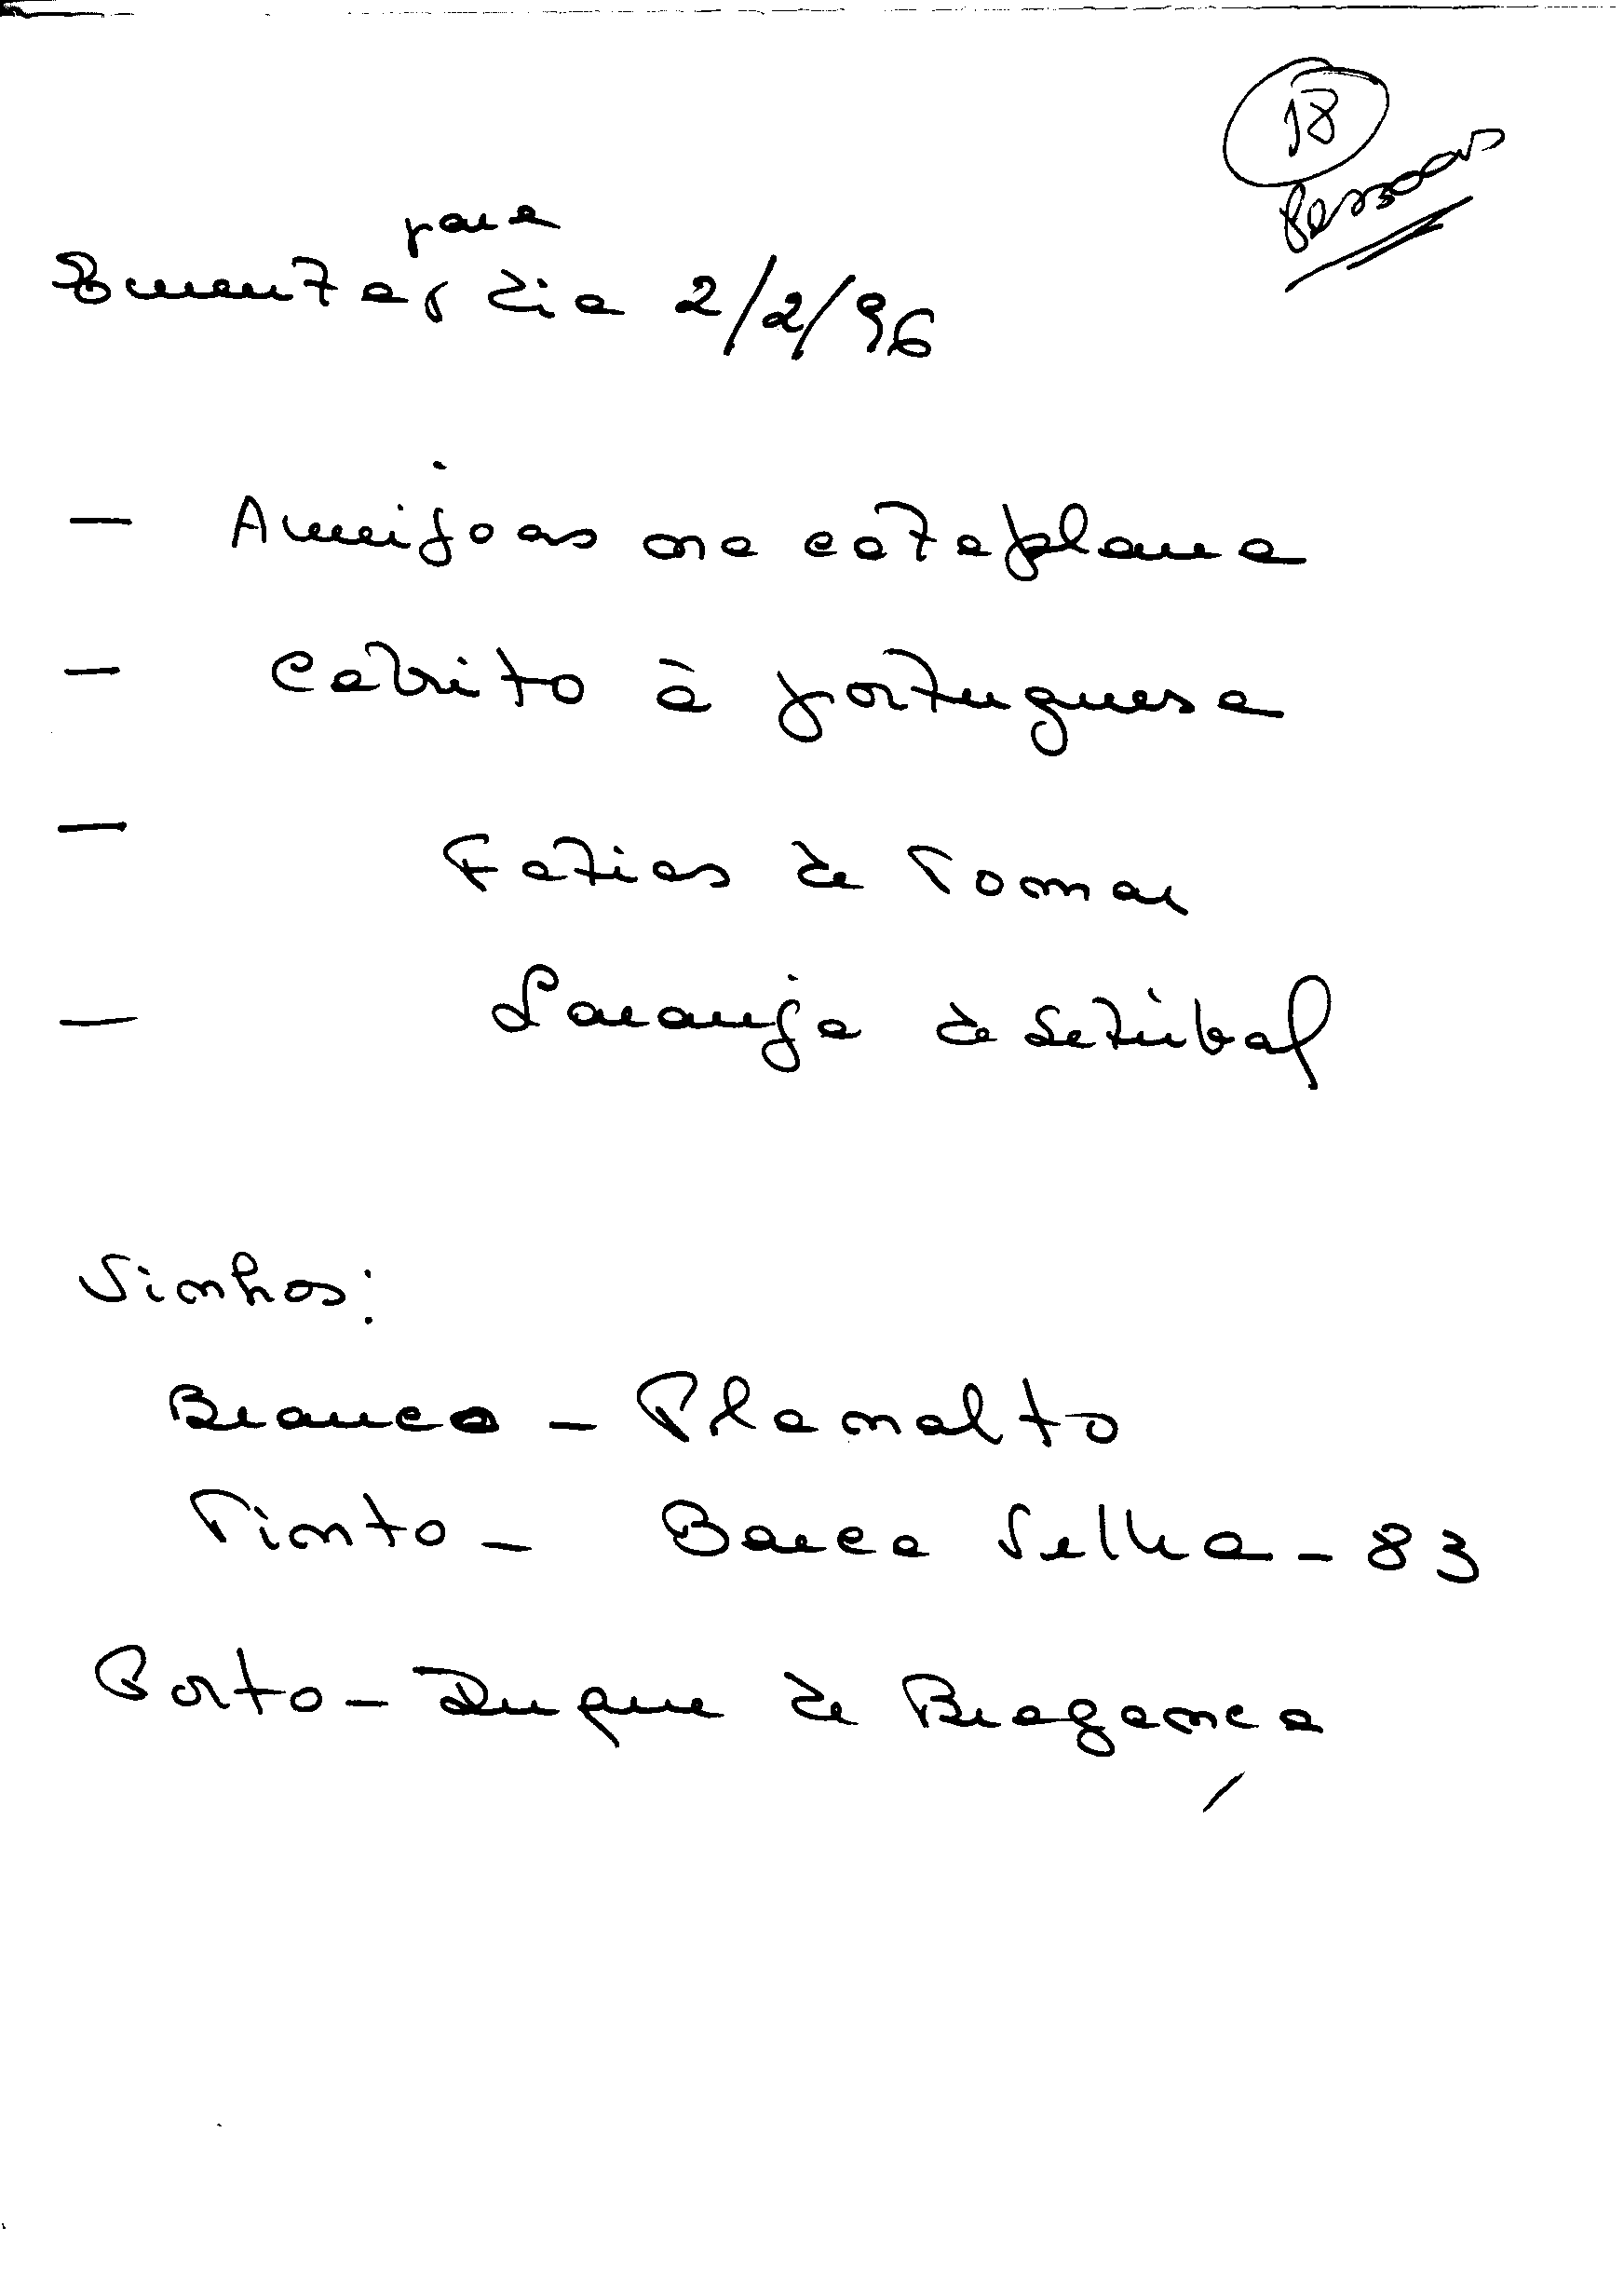 18
Pessoas
para
Ementa dia 2/2/96
- Ameijoas na cataplana
- Cabrito à portuguesa
- Fatias de Tomar
- Laranja de Setúbal
Vinhos:
Branco - Planalto
Tinto - Barca Velha - 83
Porto - Duque de Bragança